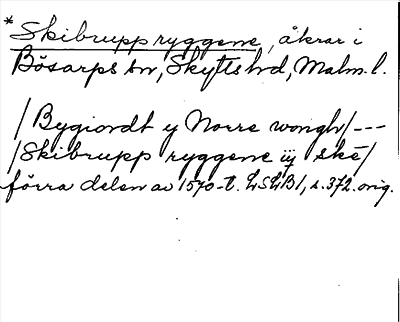 * Skibrupp ryggene, åkrar i
Bösarps sn, Skytts hd, Malm. l.
/Bygiordt y Norre wongh/---
/Skibrupp ryggene iiij ske/
förra delen av 1570-t. LSLB1, s. 372. orig.